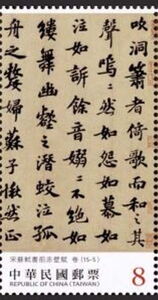 吹洞簫者倚歌而和之其
聲嗚〻然如怨如慕如
泣如訴餘音嫋〻不絕如
縷舞幽壑之潛蛟泣孤
舟之嫠婦蘇子愀然正
宋蘇軾書前赤壁賦 卷 (15-5)
中華民國郵票 8
REPUBLIC OF CHINA (TAIWAN)